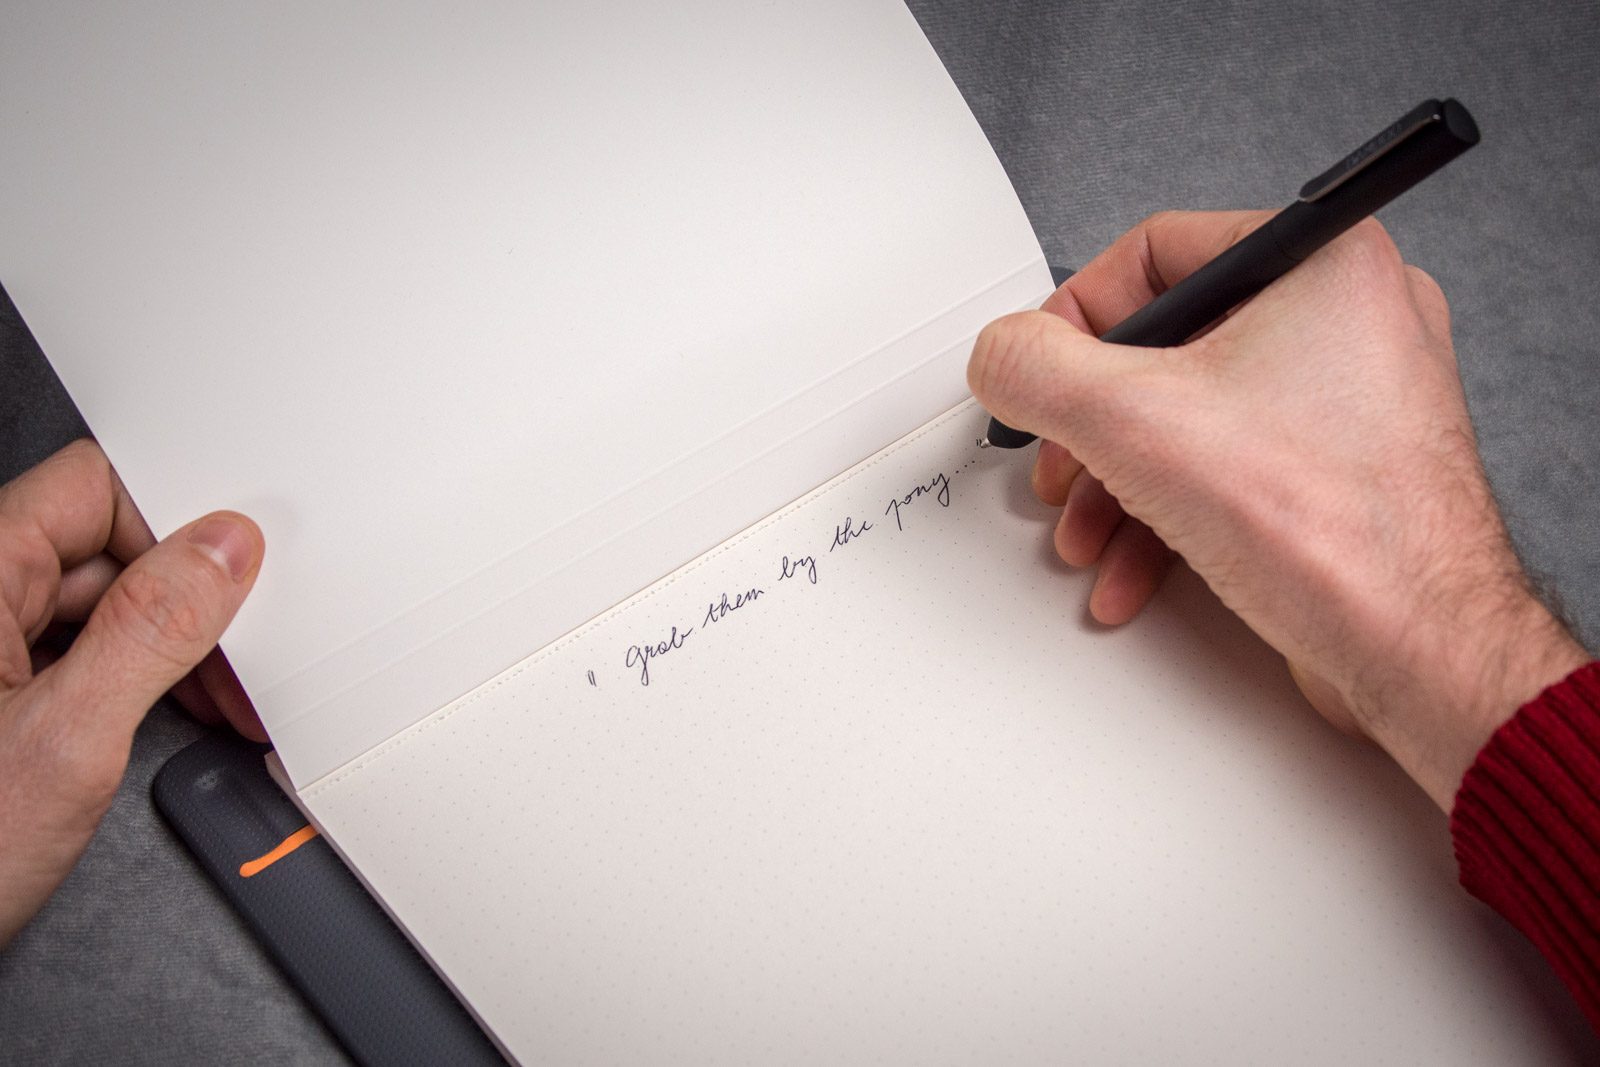 " Grab them by the pony..."